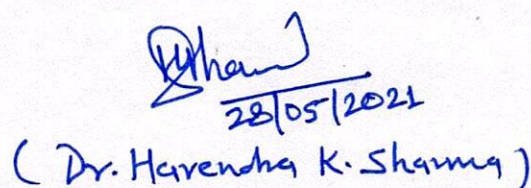 28/05/2021
( Dr. Harendra K. Sharma )